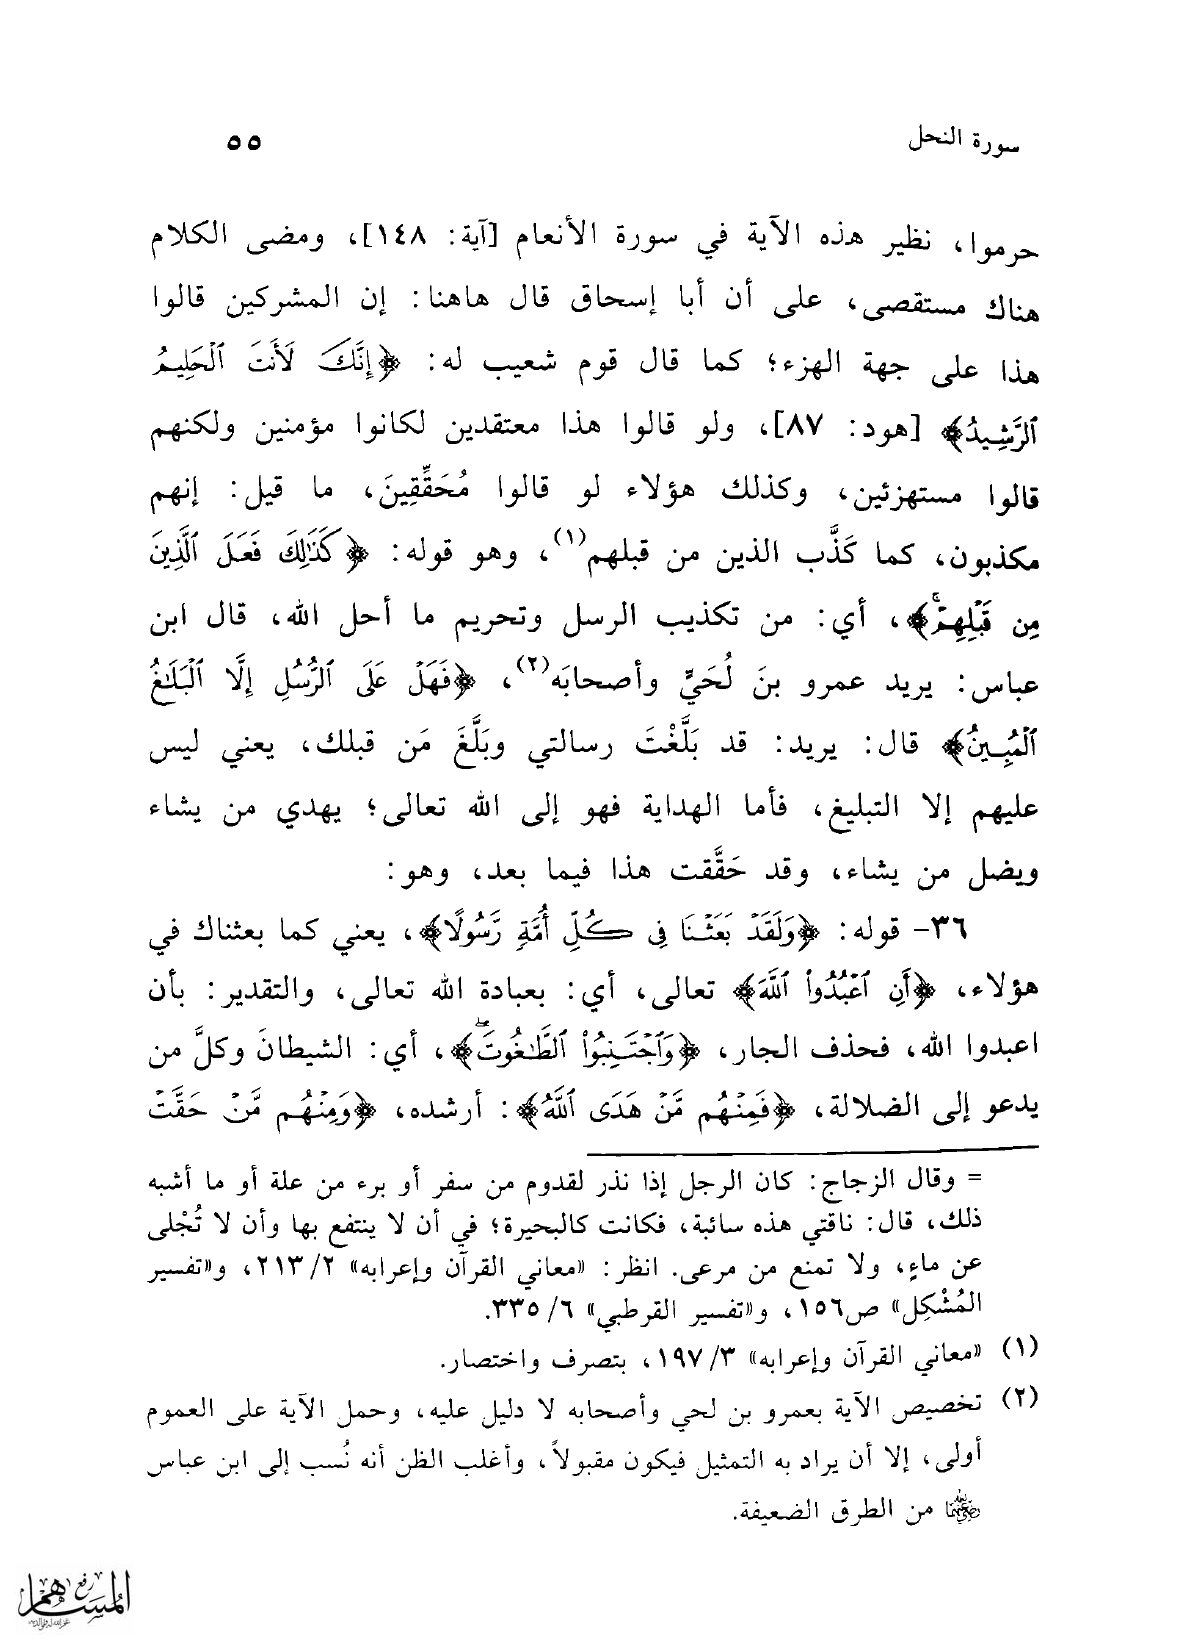 سورة النحل ٥٥
حرموا، نظير هذه الآية في سورة الأنعام [آية: ١٤٨]، ومضى الكلام
هناك مستقصى، على أن أبا إسحاق قال هاهنا: إن المشركين قالوا
هذا على جهة الهزء؛ كما قال قوم شعيب له: ﴿إِنَّكَ لَأَنتَ ٱلْحَلِيمُ
ٱلرَّشِيدُ﴾ [هود: ٨٧]، ولو قالوا هذا معتقدين لكانوا مؤمنين ولكنهم
قالوا مستهزئين، وكذلك هؤلاء لو قالوا مُحَقِّقِينَ، ما قيل: إنهم
مكذبون، كما كَذَّب الذين من قبلهم(١)، وهو قوله: ﴿كَذَٰلِكَ فَعَلَ ٱلَّذِينَ
مِن قَبْلِهِمْ ۚ﴾، أي: من تكذيب الرسل وتحريم ما أحل الله، قال ابن
عباس: يريد عمرو بنَ لُحَيٍّ وأصحابَه(٢)، ﴿فَهَلْ عَلَى ٱلرُّسُلِ إِلَّا ٱلْبَلَٰغُ
ٱلْمُبِينُ﴾ قال: يريد: قد بَلَّغْتَ رسالتي وبَلَّغَ مَن قبلك، يعني ليس
عليهم إلا التبليغ، فأما الهداية فهو إلى الله تعالى؛ يهدي من يشاء
ويضل من يشاء، وقد حَقَّقت هذا فيما بعد، وهو:
٣٦- قوله: ﴿وَلَقَدْ بَعَثْنَا فِى كُلِّ أُمَّةٍ رَّسُولًا﴾، يعني كما بعثناك في
هؤلاء، ﴿أَنِ ٱعْبُدُوا۟ ٱللَّهَ﴾ تعالى، أي: بعبادة الله تعالى، والتقدير: بأن
اعبدوا الله، فحذف الجار، ﴿وَٱجْتَنِبُوا۟ ٱلطَّٰغُوتَ ۖ﴾، أي: الشيطانَ وكلَّ من
يدعو إلى الضلالة، ﴿فَمِنْهُم مَّنْ هَدَى ٱللَّهُ﴾: أرشده، ﴿وَمِنْهُم مَّنْ حَقَّتْ
= وقال الزجاج: كان الرجل إذا نذر لقدوم من سفر أو برء من علة أو ما أشبه
ذلك، قال: ناقتي هذه سائبة، فكانت كالبحيرة؛ في أن لا ينتفع بها وأن لا تُجْلى
عن ماءٍ، ولا تمنع من مرعى. انظر: «معاني القرآن وإعرابه» ٢/ ٢١٣، و«تفسير
المُشْكِل» ص١٥٦، و«تفسير القرطبي» ٦/ ٣٣٥.
(١) «معاني القرآن وإعرابه» ٣/ ١٩٧، بتصرف واختصار.
(٢) تخصيص الآية بعمرو بن لحي وأصحابه لا دليل عليه، وحمل الآية على العموم
أولى، إلا أن يراد به التمثيل فيكون مقبولاً، وأغلب الظن أنه نُسب إلى ابن عباس
رضي الله عنهما من الطرق الضعيفة.
رفع
المساهم